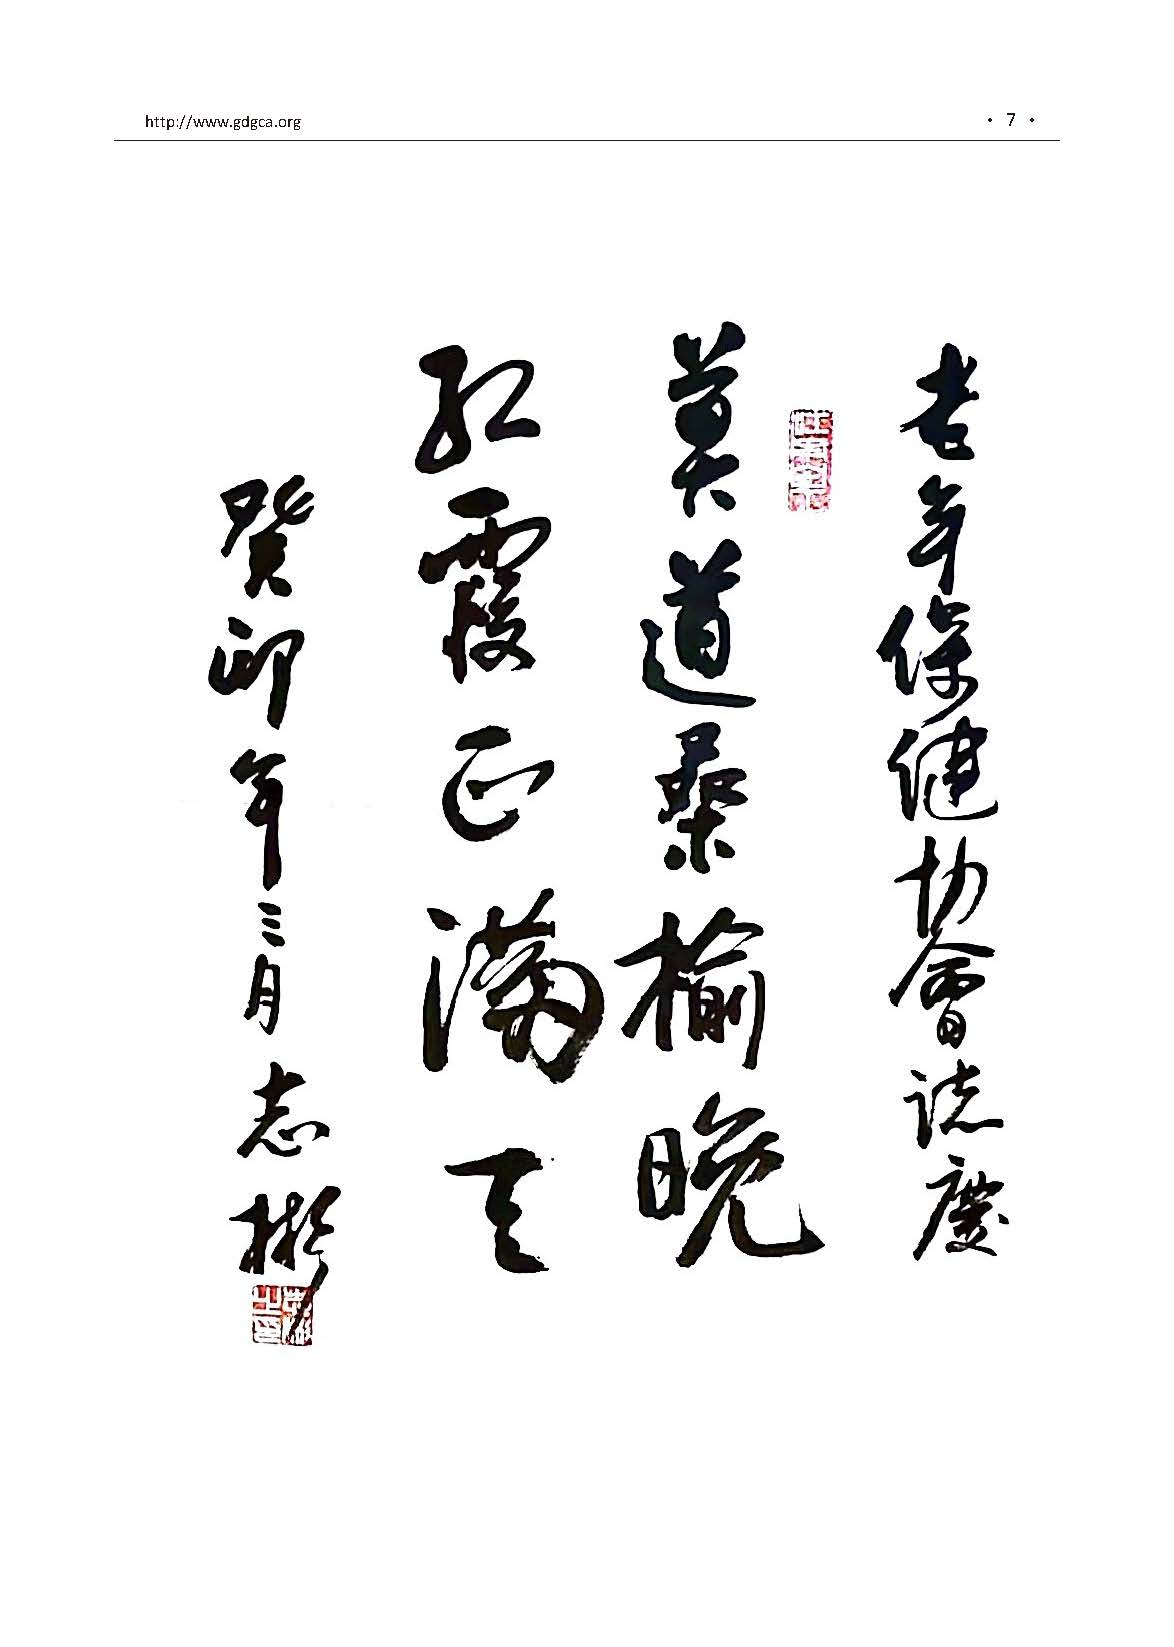 http://www.gdgca.org
· 7 ·
老年保健协會誌慶
莫道桑榆晚
红霞正满天
癸卯年三月 志彬